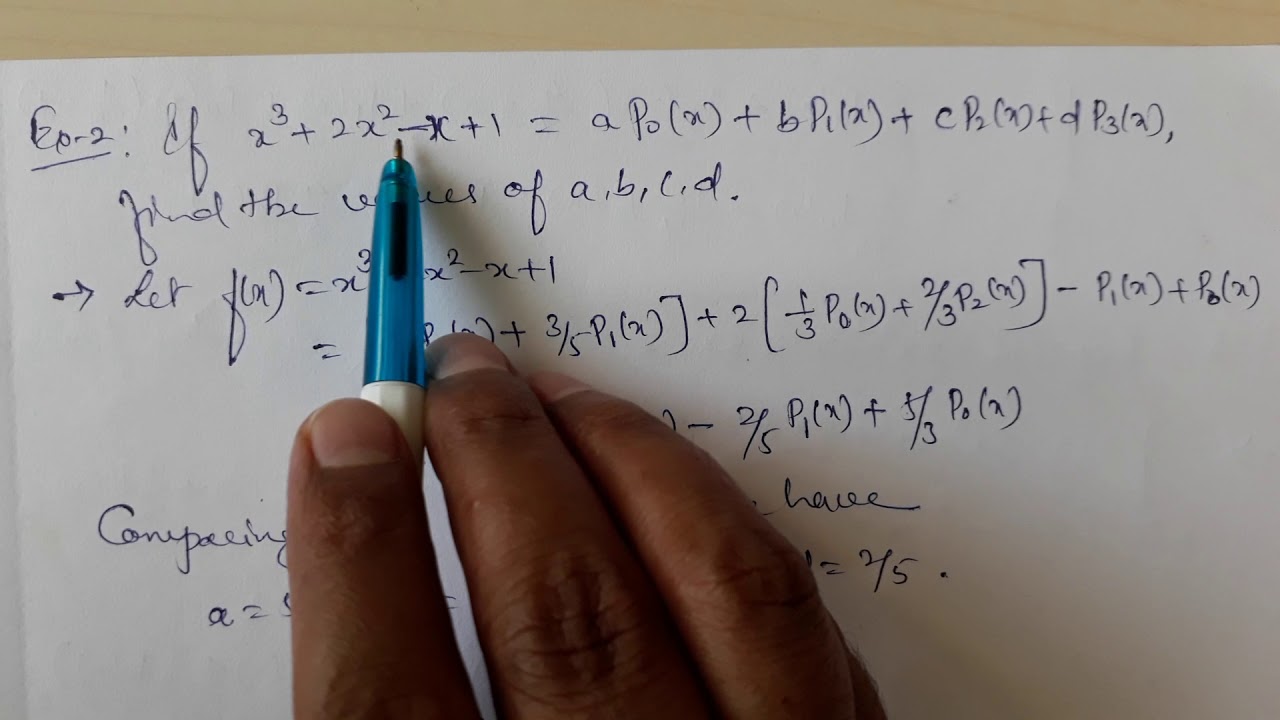 Ex-2: If x³ + 2x² - x + 1 = a P₀(x) + b P₁(x) + c P₂(x) + d P₃(x),
find the of a, b, c, d.
→ Let f(x) = x³ x² - x + 1
= + 3/5 P₁(x)] + 2 [1/3 P₀(x) + 2/3 P₂(x)] - P₁(x) + P₀(x)
- 2/5 P₁(x) + 5/3 P₀(x)
Comparing have
a = = 2/5 .